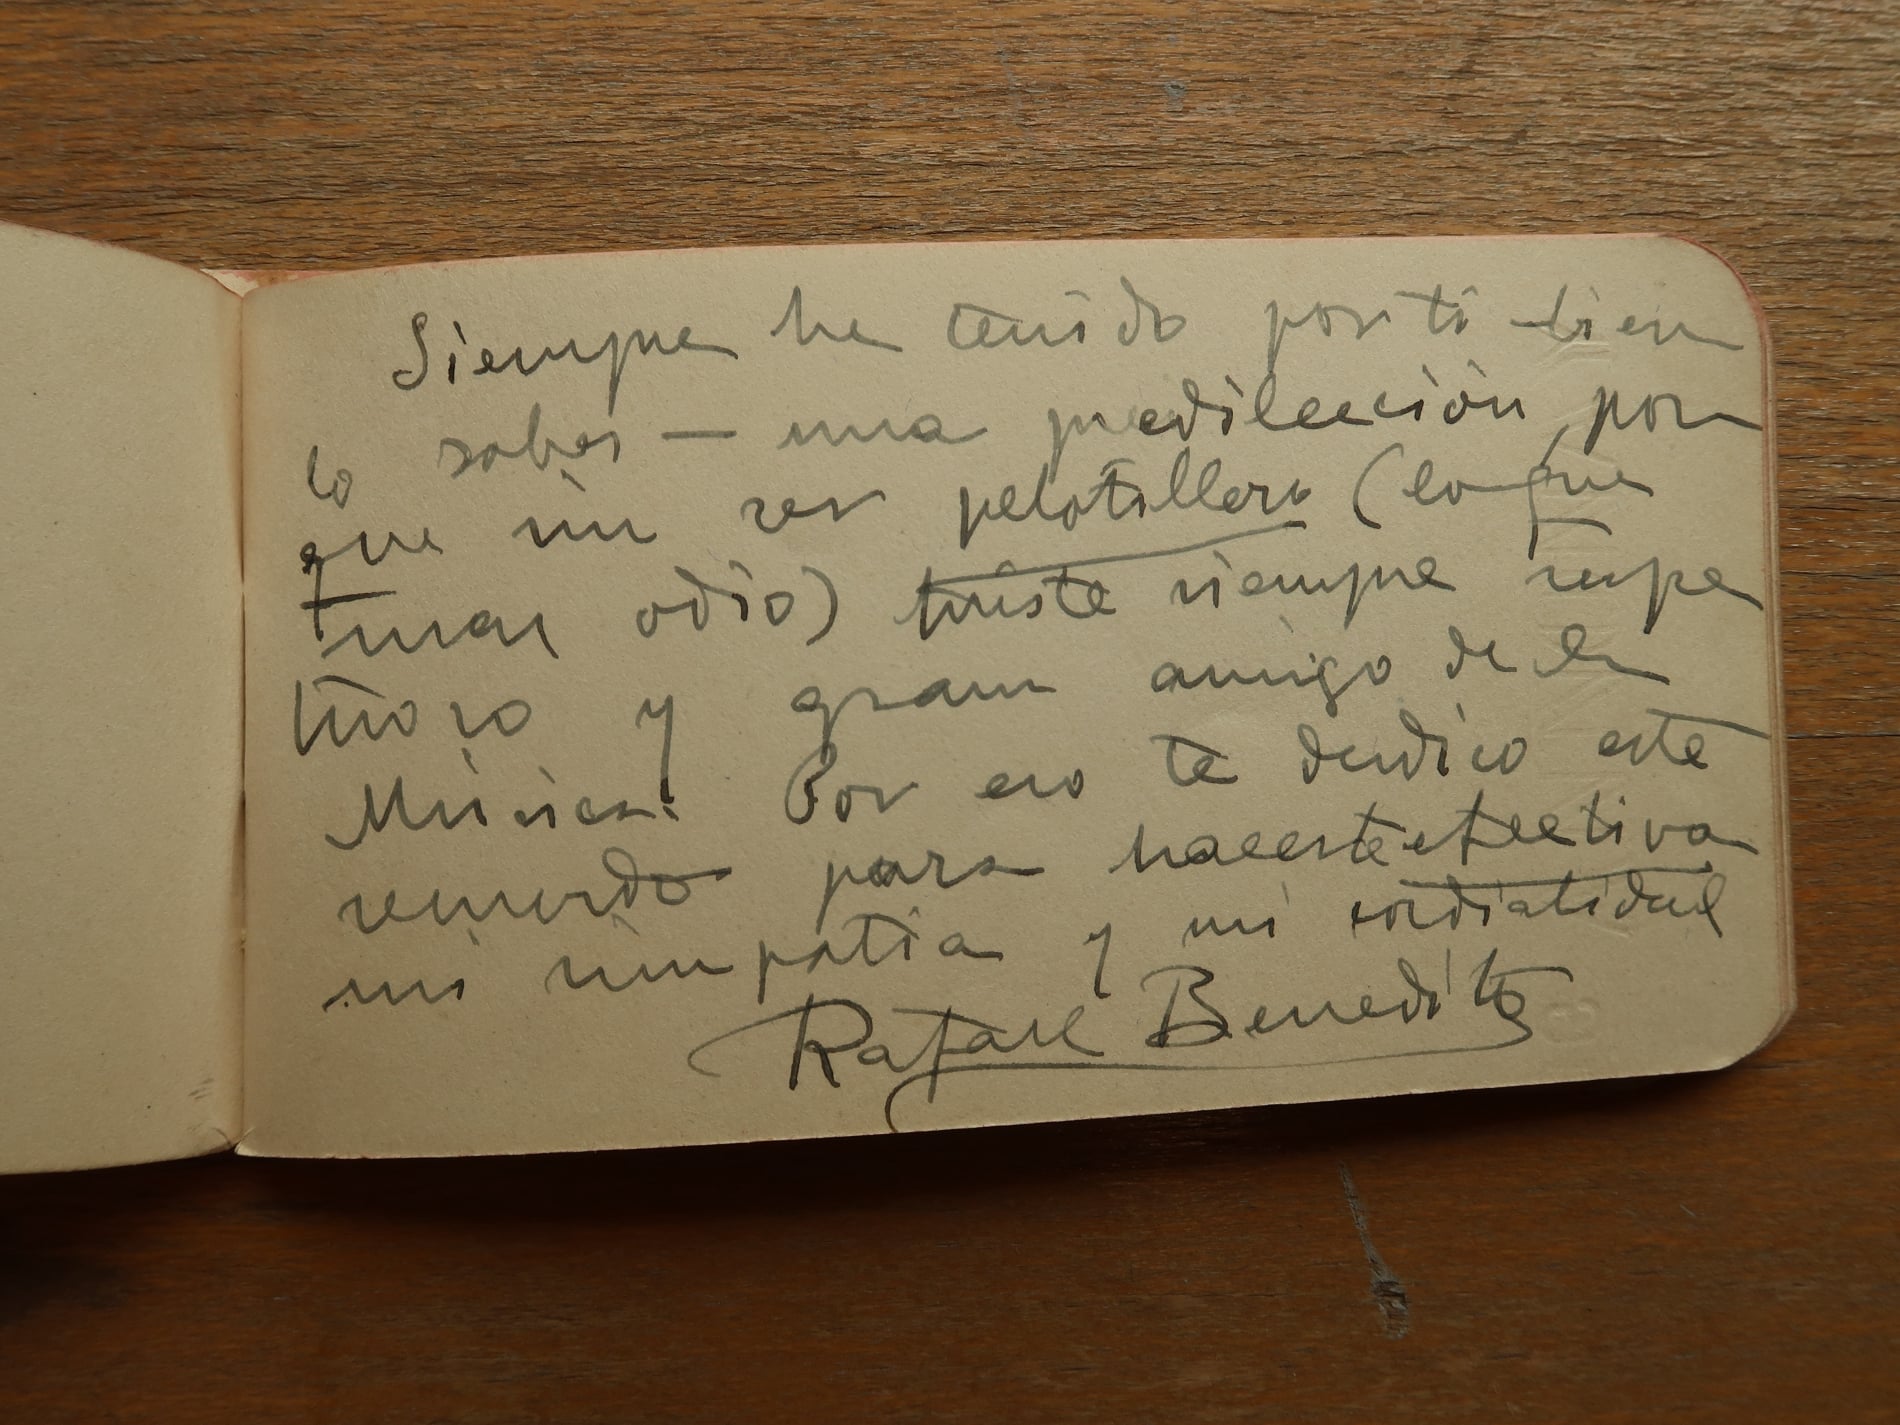 Siempre he tenido por ti bien
lo sabes — una predilección por
que sin ser pelotillero (lo que
mas odio) fuiste siempre respe
tuoso y gran amigo de la
Música. Por eso te dedico este
recuerdo para hacerte efectiva
mi simpatia y mi cordialidad
Rafael Benedito